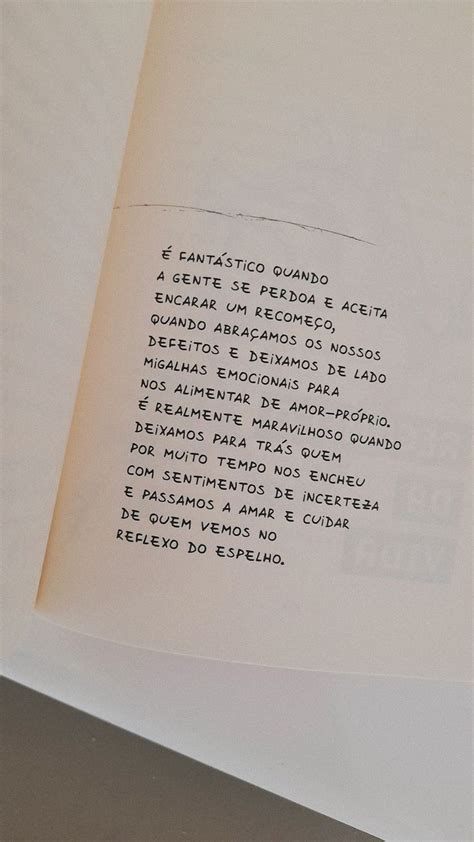 É FANTÁSTICO QUANDO
A GENTE SE PERDOA E ACEITA
ENCARAR UM RECOMEÇO,
QUANDO ABRAÇAMOS OS NOSSOS
DEFEITOS E DEIXAMOS DE LADO
MIGALHAS EMOCIONAIS PARA
NOS ALIMENTAR DE AMOR-PRÓPRIO.
É REALMENTE MARAVILHOSO QUANDO
DEIXAMOS PARA TRÁS QUEM
POR MUITO TEMPO NOS ENCHEU
COM SENTIMENTOS DE INCERTEZA
E PASSAMOS A AMAR E CUIDAR
DE QUEM VEMOS NO
REFLEXO DO ESPELHO.